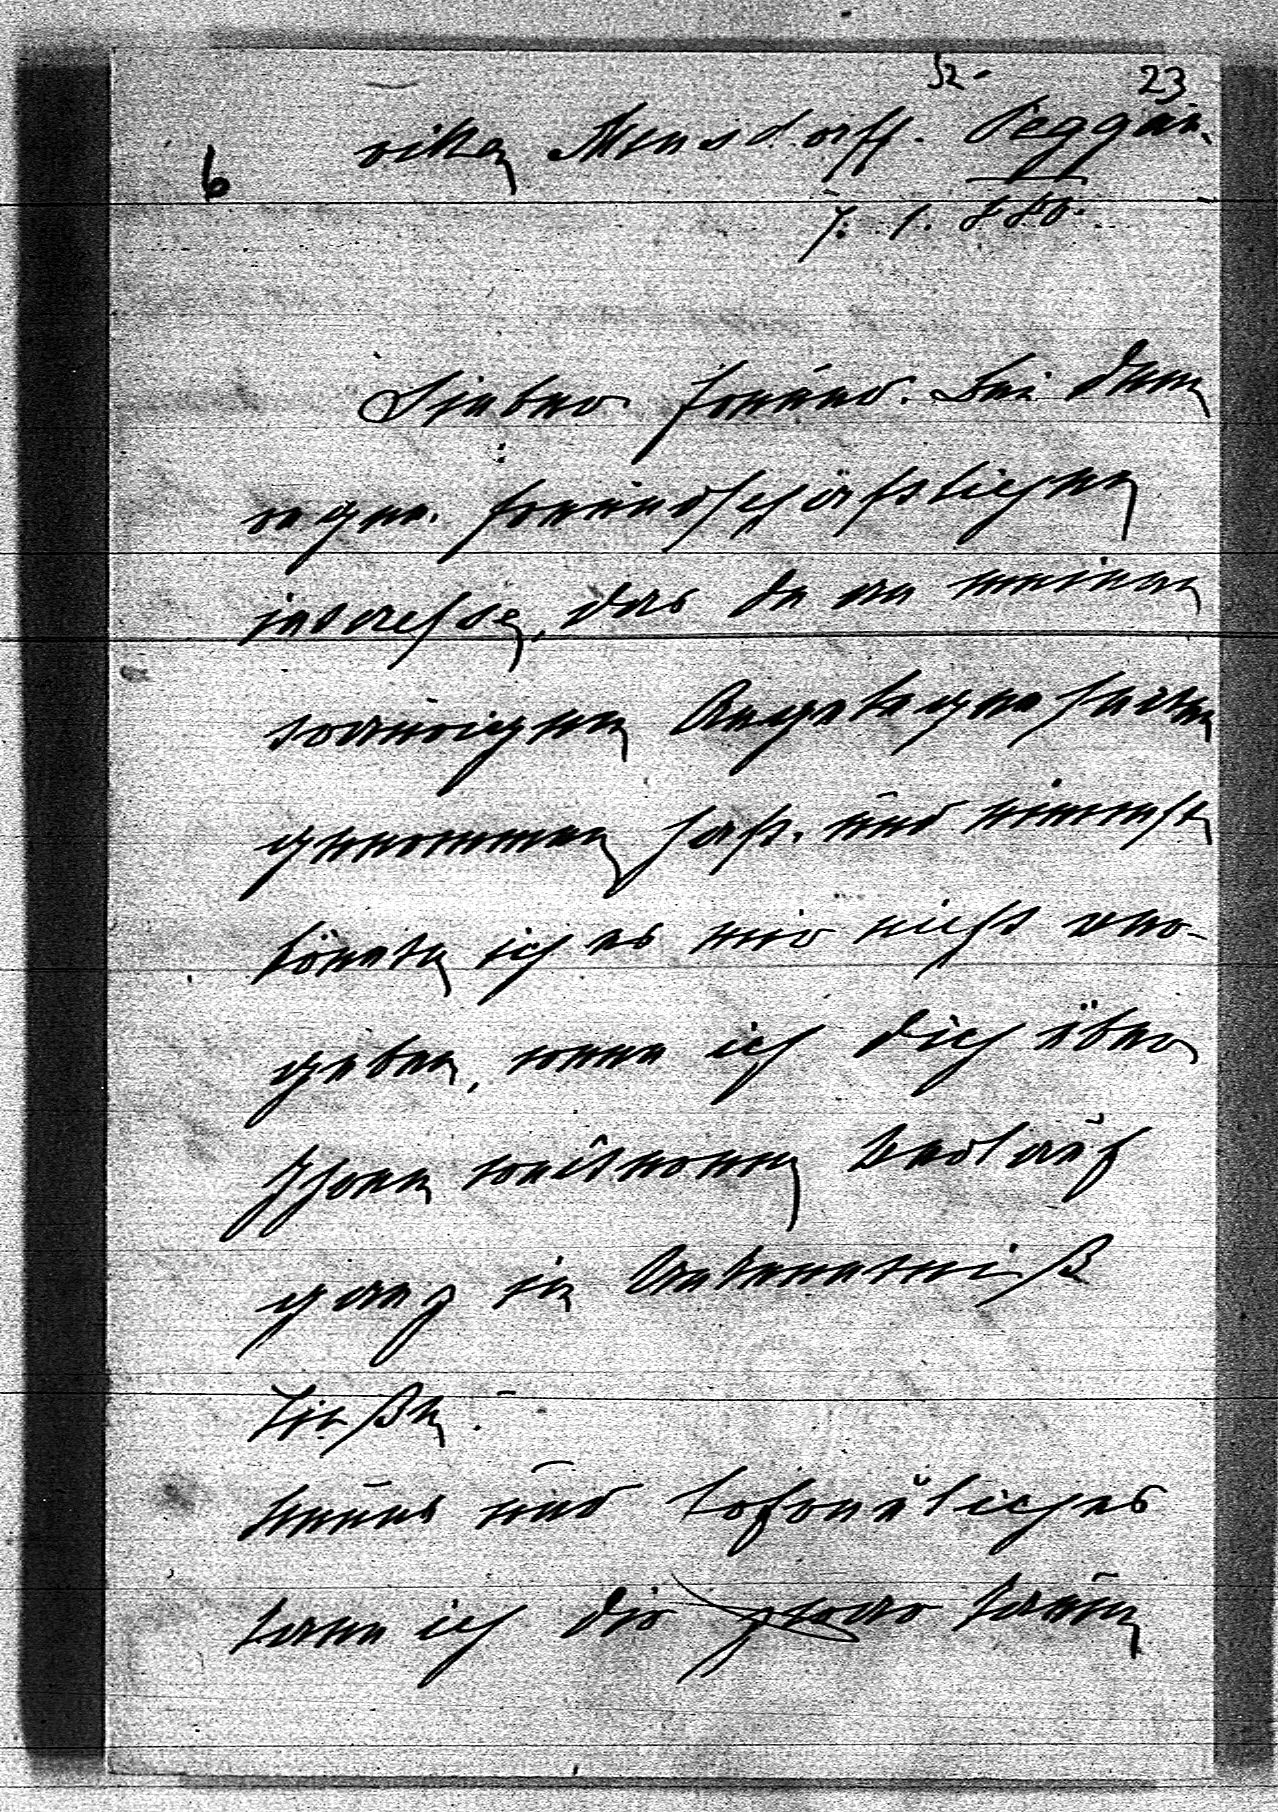 52- 23
6 villa Mensdorff. Peggau.
7. 1. 880.
Lieber Freund. Bei dem
regen. freundschäftlichen
interesse, das du an meinen
traurigen Angelegenheiten
genommen hast. und nimmst
könnte ich es mir nicht ver-
geben, wenn ich dich über
Ihren weiteren Verlauf
ganz in Unkenntniß
ließe.
neues und erfreuliches
kann ich dir zwar kaum